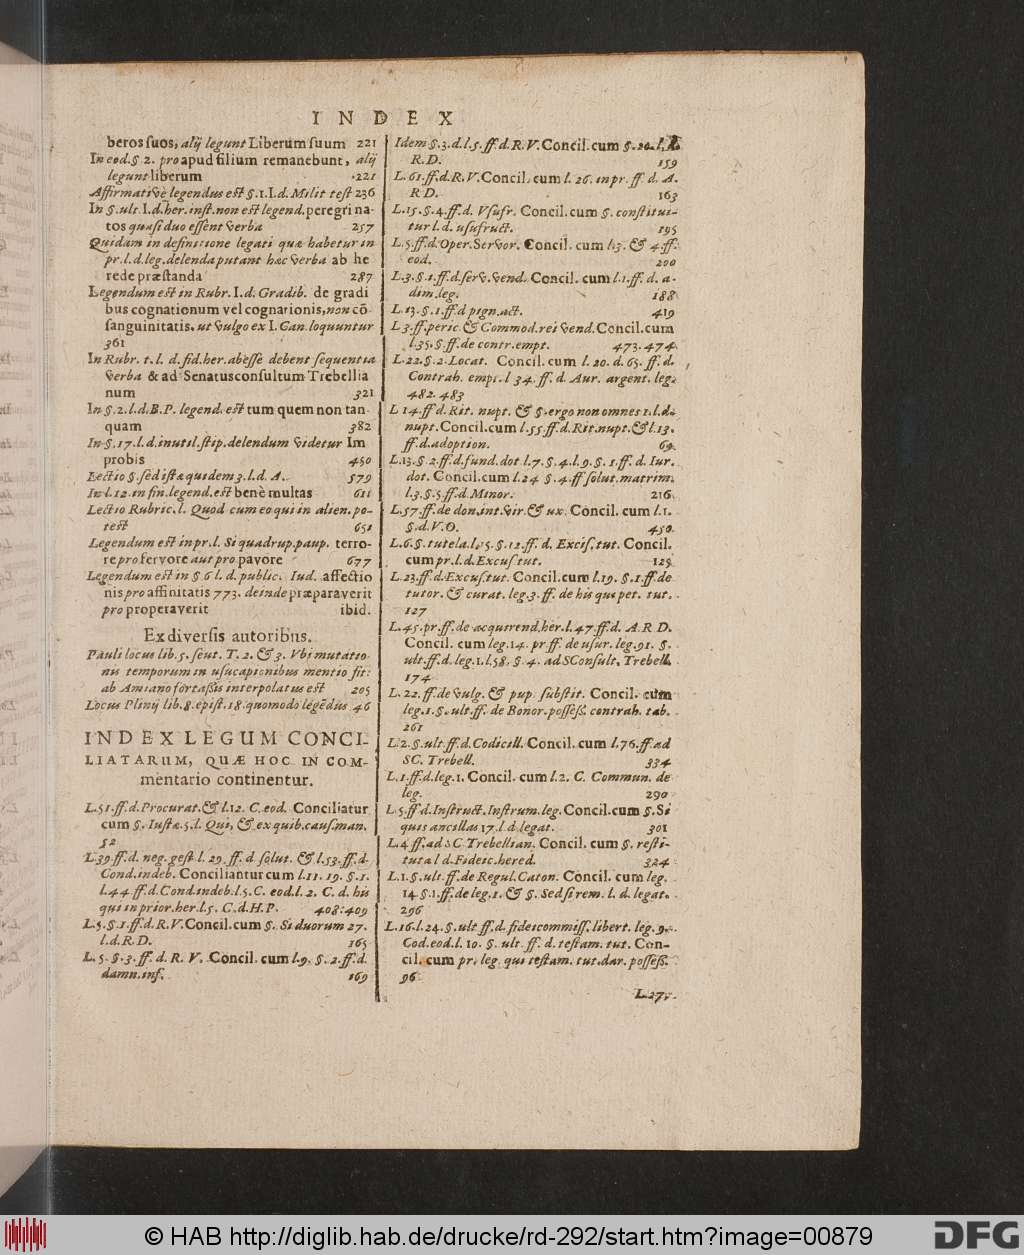 INDEX
beros suos, alij legunt Liberum suum 221
In eod. §. 2. pro apud filium remanebunt, alij
legunt liberum 221
Affirmativè legendus est §. 1. I. d. Milit test 236
In §. ult. I. d. her. inst. non est legend. peregrina-
tos quasi duo essent verba 257
Quidam in definitione legati quæ habetur in
pr. l. d. leg. delenda putant hæc verba ab he
rede præstanda 287
Legendum est in Rubr. I. d. Gradib. de gradi
bus cognationum vel cognationis, non cõ
sanguinitatis. ut vulgo ex I. Can. loquuntur
361
In Rubr. t. l. d. fid. her. abesse debent sequentia
verba & ad Senatusconsultum Trebellia
num 321
In §. 2. l. d. B. P. legend. est tum quem non tan-
quam 382
In §. 17. l. d. inutil. stip. delendum videtur Im
probis 450
Lectio §. sed istæ quidem 3. l. d. A. 579
In l. 12. in fin. legend. est benè multas 611
Lectio Rubric. l. Quod cum eo qui in alien. po-
test 651
Legendum est in pr. l. Si quadrup. paup. terro-
re pro fervore aut pro pavore 677
Legendum est in §. 6 l. d. public. Iud. affectio
nis pro affinitatis 773. deinde præparaverit
pro properaverit ibid.
Ex diversis autoribus.
Pauli locus lib. 5. sent. T. 2. & 3. Ubi mutatio-
nis temporum in usucapionibus mentio fit:
ab Aniano fortassis interpolatus est 205
Locus Plinij lib. 8. epist. 18. quomodo legēdus 46
INDEX LEGUM CONCI-
LIATARUM, QUÆ HOC IN COM-
mentario continentur.
L. 51. ff. d. Procurat. & l. 12. C. eod. Conciliatur
cum §. Iustæ. 5. l. Qui, & ex quib. caus. man.
52
L. 39. ff. d. neg. gest. l. 29. ff. d solut. & l. 53. ff. d.
Cond. indeb. Conciliantur cum l. 11. 19. §. 1.
l. 44 ff. d. Cond. indeb. l. 5. C. eod. l. 2. C. d. his
qui in prior. her. l. 5. C. d. H. P. 408. 409
L. 5. §. 1. ff. d. R. V. Concil. cum §. Si duorum 27.
l. d. R. D. 165
L. 5. §. 3. ff. d. R. V. Concil. cum l. 9. §. 2. ff. d.
damn. inf. 169
Idem §. 3. d. l. 5. ff. d. R. V. Concil. cum §. 20. l.
R. D. 159
L. 61. ff. d. R. V. Concil. cum l. 26. in pr. ff. d. A.
R D. 163
L. 15. §. 4. ff. d. Usufr. Concil. cum §. constitui-
tur l. d. usufruct. 195
L. 5. ff. d. Oper. Servor. Concil. cum l. 3. & 4 ff.
eod. 200
L. 3. §. 1. ff. d. serv. vend. Concil. cum l. 1. ff. d. a-
dim. leg. 188
L. 13. §. 1. ff. d pign. act. 419
L 3. ff. peric. & Commod. rei vend. Concil. cum
l. 35. §. ff. de contr. empt. 473. 474.
L. 22. §. 2. Locat. Concil. cum l. 20. d. 65. ff. d.
Contrah. empt. l 34. ff. d. Aur. argent. leg.
482. 483
L 14. ff. d. Rit. nupt. & §. ergo non omnes 1. l. d.
nupt. Concil. cum l. 55. ff. d. Rit. nupt. & l. 13.
ff. d. adoption. 69.
L. 13. §. 2. ff. d. fund. dot l. 7. §. 4. l. 9. §. 1. ff. d. Iur.
dot. Concil. cum l. 24 §. 4. ff solut. matrim.
l. 3. §. 5. ff. d Minor. 216.
L. 57. ff. de don. int. vir. & ux. Concil. cum l. 1.
§. d. V. O. 450.
L. 6. §. tutela. l. 15. §. 12. ff. d. Excis. tut. Concil.
cum pr. l. d. Excus tut. 125
L. 23. ff. d. Excus. tut. Concil. cum l. 19. §. 1. ff. de
tutor. & curat. leg. 3. ff. de his qui pet. tut.
127
L. 45. pr. ff. de acquirend. her. l. 47. ff. d. A. R D.
Concil. cum leg. 14. pr ff. de usur. leg. 91. §.
ult. ff. d. leg. 1. l. 58. §. 4. ad SConsult. Trebell.
174
L. 22. ff. de vulg. & pup. substit. Concil. cum
leg. 1. §. ult. ff. de Bonor. possess. contrah. tab.
261
L. 2. §. ult. ff. d. Codicill. Concil. cum l. 76. ff. ad
SC. Trebell. 334
L. 1. ff. d. leg. 1. Concil. cum l. 2. C. Commun. de
leg. 290
L. 5. ff. d. Instruct. Instrum. leg. Concil. cum §. Si
quis ancillas 17. l. d legat. 301
L. 4. ff. ad SC Trebellian. Concil. cum §. resti-
tuta l d. Fideic. hered. 324
L. 1. §. ult. ff. de Regul. Caton. Concil. cum leg.
14. §. 1. ff. de leg. 1. & §. Sed si rem. l. d. legat.
296
L. 16. l. 24. §. ult ff. d. fideicommiss. libert. leg. 9.
Cod. eod. l. 10. §. ult. ff. d. testam. tut. Con-
cil. cum pr. leg. qui testam. tut. dar. possess.
96
L. 27.
© HAB http://diglib.hab.de/drucke/rd-292/start.htm?image=00879
DFG